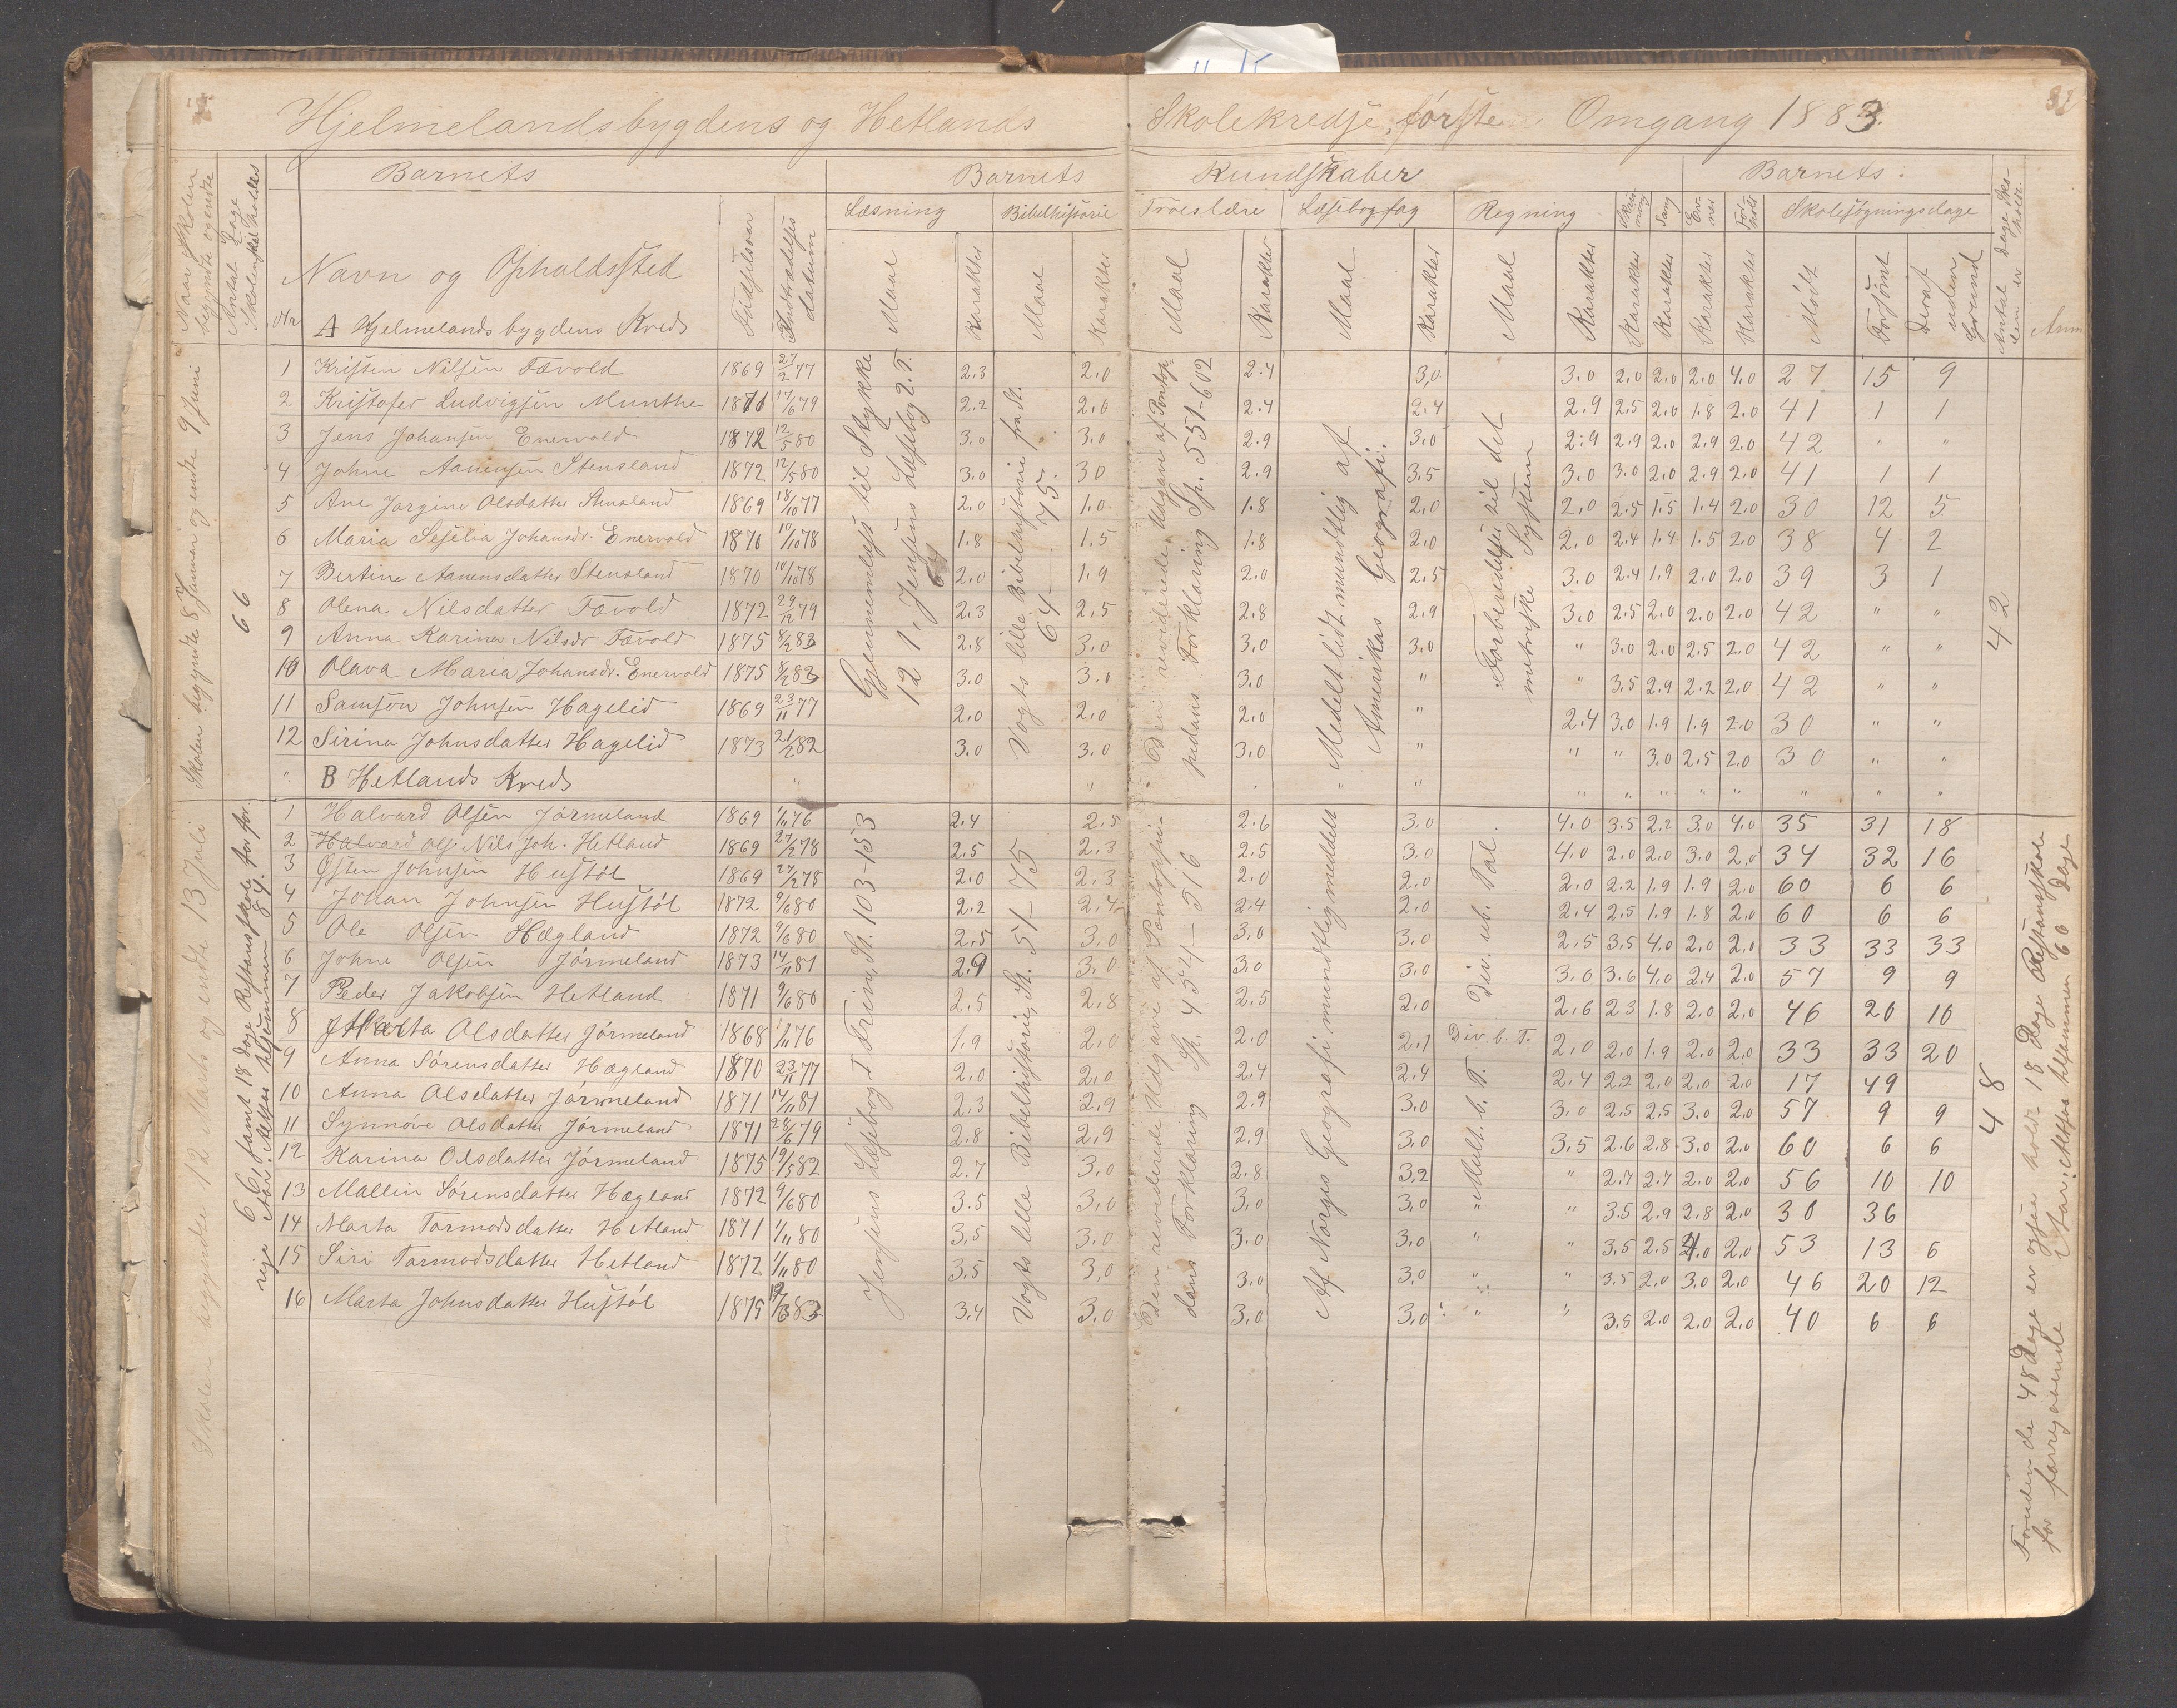 Hjelmelandsbygdens og Hetlands Skolekredse, første Omgang 1883. 32
Naar Skolen begyndte og endte
Antal Dage Skolen skal holdes
Barnets
Barnets Kundskaber
Barnets
Nr Navn og Opholdssted
Fødselsaar
Indtrædelses datum
Læsning
Bibelhistorie
Troeslære
Læsebogfag
Regning
Skrivning
Sang
Evner
Forhold
Skolesøgningsdage
Maal Karakter Maal Karakter Maal Karakter Maal Karakter Maal Karakter Karakter Karakter Karakter Karakter Mødt Forsømt Deraf uden Grund
Antal Dage Skolen er holdt
Anm
A Hjelmelandsbygdens Kreds
Skolen begyndte 8 Januar og endte 9 Juni
66
1 Kristen Nilsen Tævold 1869 27/2 77 2.3 2.0 2.4 3,0 3.0 2.0 2.0 2.0 4.0 27 15 9
2 Kristofer Ludvigsen Munthe 1871 17/6 79 2.2 2.0 2.4 2.4 2.9 2.5 2.0 1.8 2.0 41 1 1
3 Jens Johansen Enervold 1872 12/5 80 3.0 3.0 2.9 3.0 2.9 2.9 2.0 2.9 2.0 42 " "
4 Johne Aanensen Stensland 1872 12/5 80 3.0 30 2.9 3.5 3.0 3.0 2.0 2.9 2.0 41 1 1
5 Ane Jorgine Olsdatter Stensland 1869 18/10 77 2.0 1.0 1.8 2,0 2,0 2.5 1.5 1.4 2.0 30 12 5
6 Maria Seselia Johansdr. Enervold 1870 10/10 78 1.8 1.5 1.8 2.0 2.0 2.4 1.4 1.5 2.0 38 4 2
7 Bertine Aanensdatter Stensland 1870 10/10 78 2.0 1.9 2.0 2.5 3.0 2.4 1.9 2.0 2.0 39 3 1
8 Olena Nilsdatter Tævold 1872 29/12 79 2.3 2.5 2.8 2.9 3.0 2.5 2.0 2.0 2.0 42 " "
9 Anna Karine Nilsdr Tævold 1875 8/2 83 2.8 3.0 3.0 3.0 " 3.0 2.0 2.5 2.0 42 " "
10 Olava Maria Johansdr. Enervold 1875 8/2 83 3.0 3.0 3.0 " " 3.5 2.9 2.2 2.0 42 " "
11 Samson Johnsen Hagelid 1869 23/11 77 2.0 2.0 2.0 " 2.4 3.0 1.9 1.9 2.0 30 " "
12 Sirina Johnsdatter Hagelid 1873 21/2 82 3.0 3.0 3.0 " " " 3.0 2.5 2.0 30 " "
Gjennemlæst til Stykke
12 1, Jensens Læsebog 2. T.
Vogts lille Bibelhistorie fra St.
64 — 75.
Den reviderede Udgave af Pontoppidans Forklaring Sp. 551-602
Meddelt lidt mundtlig af Amerikas Geografi.
Forberedelse til det metriske System
42
" B Hetlands Kreds " " " " " " " " " " " " " "
Skolen begyndte 12 Marts og endte 13 Juli
66 samt 18 Dage Restansskole for forrige Aar. Altsaa tilsammen 84.
1 Halvard Olsen Jørmeland 1869 1/11 76 2.4 2.5 2.6 3.0 4.0 3.5 2.2 3.0 4.0 35 31 18
2 Halvard Ols. Nils Joh. Hetland 1869 27/2 78 2.5 2.3 2.5 3.0 4.0 2.0 2.0 3.0 2.0 34 32 16
3 Østen Johnsen Hustøl 1869 27/2 78 2.0 2.3 2.0 2.0 2.0 2.2 1.9 1.9 2.0 60 6 6
4 Johan Johnsen Hustøl 1872 9/6 80 2.2 2.4 2.4 2.0 2.4 2.5 1.9 1.8 2.0 60 6 6
5 Ole Olsen Hægland 1872 9/6 80 2.5 3.0 3.0 3.0 2.5 3.5 4.0 2.0 2.0 33 33 33
6 Johne Olsen Jørmeland 1873 14/11 81 2.9 3.0 3.0 3.0 3.0 3.6 4.0 2.4 2.0 57 9 9
7 Peder Jakobsen Hetland 1871 9/6 80 2.5 2.8 2.5 2.0 2.6 2.3 1.8 2.0 2.0 46 20 10
8 Marta Olsdatter Jørmeland 1868 1/11 76 1.9 2.0 2.0 2.1 Div. b. T. 2.0 2.0 1.9 2.0 2.0 33 33 20
9 Anna Sørensdatter Hægland 1870 23/11 77 2.0 2.0 2.4 2.4 2.4 2.2 2.0 2.0 2.0 17 49
10 Anna Olsdatter Jørmeland 1871 14/11 81 2.3 2.9 2.9 3.0 3.0 2.5 2.5 3.0 2.0 57 9 9
11 Synnøve Olsdatter Jørmeland 1871 28/6 79 2.8 2.9 2.9 3.0 3.5 2.6 2.8 3.0 2.0 60 6 6
12 Karina Olsdatter Jørmeland 1875 19/5 82 2.7 3.0 2.8 3.2 " 2.7 2.7 2.0 2.0 56 10 10
13 Mallin Sørensdatter Hægland 1872 9/6 80 3.5 3,0 3.0 3.0 " " 3.5 2.9 2.8 2.0 30 36
14 Marta Tormodsdatter Hetland 1871 1/11 80 3.5 3.0 3.0 3.0 " " 3.5 2.5 4.0 2.0 53 13 6
15 Siri Tormodsdatter Hetland 1872 1/11 80 3.5 3,0 3.0 3.0 " " 3.5 2.0 3.0 2.0 46 20 12
16 Marta Johnsdatter Hustøl 1875 83 3.4 3.0 3.0 3.0 " " 3.5 2.0 2.0 2.0 40 6 6
Jensens Læsebog I Trin, St. 103-153
Vogts lille Bibelhistorie, St. 51 — 75
Den reviderede Udgave af Pontoppidans Forklaring Sp. 454 — 516
Af Norges Geografi mundtlig meddelt
Div. ub. Tal.
Mult. b. T.
48
Foruden de 48 Dage er ogsaa holdt 18 Dage Restansskole for foregaaende Aar; Altsaa tilsammen 60 Dage